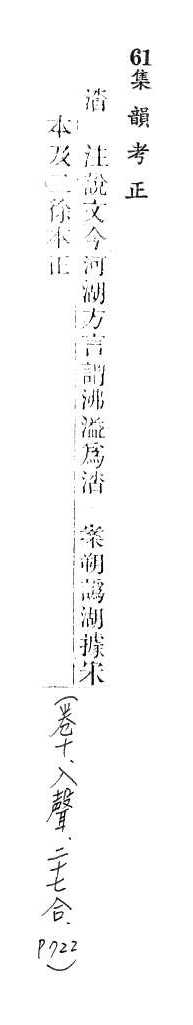 61集韻考正
涾　注說文今河湖方言謂沸溢爲涾　案朔譌湖據宋
本及二徐本正
(卷十、入聲、二十七合、P722)